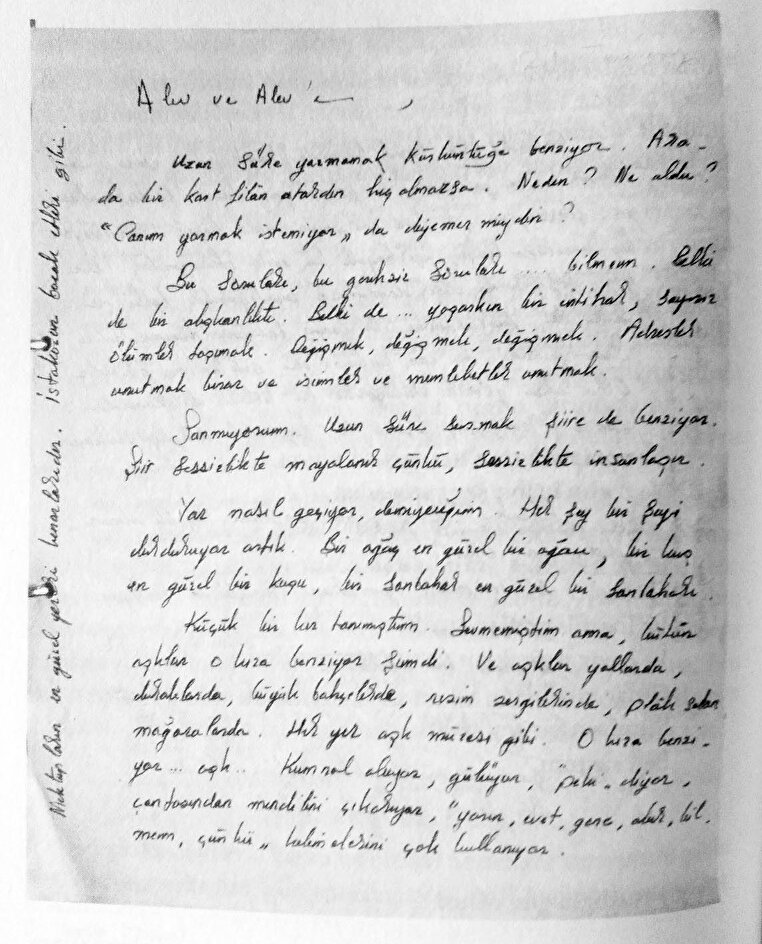 Alev ve Alev'e
Uzun süre yazmamak küskünlüğe benziyor. Ara-
da bir kart filân atardın hiç olmazsa. Neden? Ne oldu?
"Canım yazmak istemiyor" da diyemez miydin?
Bu sorulara, bu gereksiz sorulara .... bilmem. Belki
de bir alışkanlıktı. Belki de ... yaşarken bir intihar, sayısız
ölümler taşımak. Değişmek, değişmek, değişmek. Adresler
unutmak biraz ve isimler ve memleketler unutmak.
Sanmıyorum. Uzun süre susmak şiire de benziyor.
Şiir sessizlikte mayalanır çünkü, sessizlikte insanlaşır.
Yaz nasıl geçiyor, demiyeceğim. Her şey bir şeyi
durduruyor artık. Bir ağaç en güzel bir ağacı, bir kuş
en güzel bir kuşu, bir sonbahar en güzel bir sonbaharı.
Küçük bir kız tanımıştım. Sevmemiştim ama, bütün
aşklar o kıza benziyor şimdi. Ve aşklar yollarda,
duraklarda, büyük bahçelerde, resim sergilerinde, plâk satan
mağazalarda. Her yer aşk müzesi gibi. O kıza benzi-
yor ... aşk.. Kumral oluyor, gülüyor, "peki" diyor,
çantasından mendilini çıkarıyor, "yarın, evet, gene, olur, bil-
mem, çünkü" kelimelerini çok kullanıyor.
Mektupların en güzel yerleri kenarlarıdır. İstakozun bacak etleri gibi.